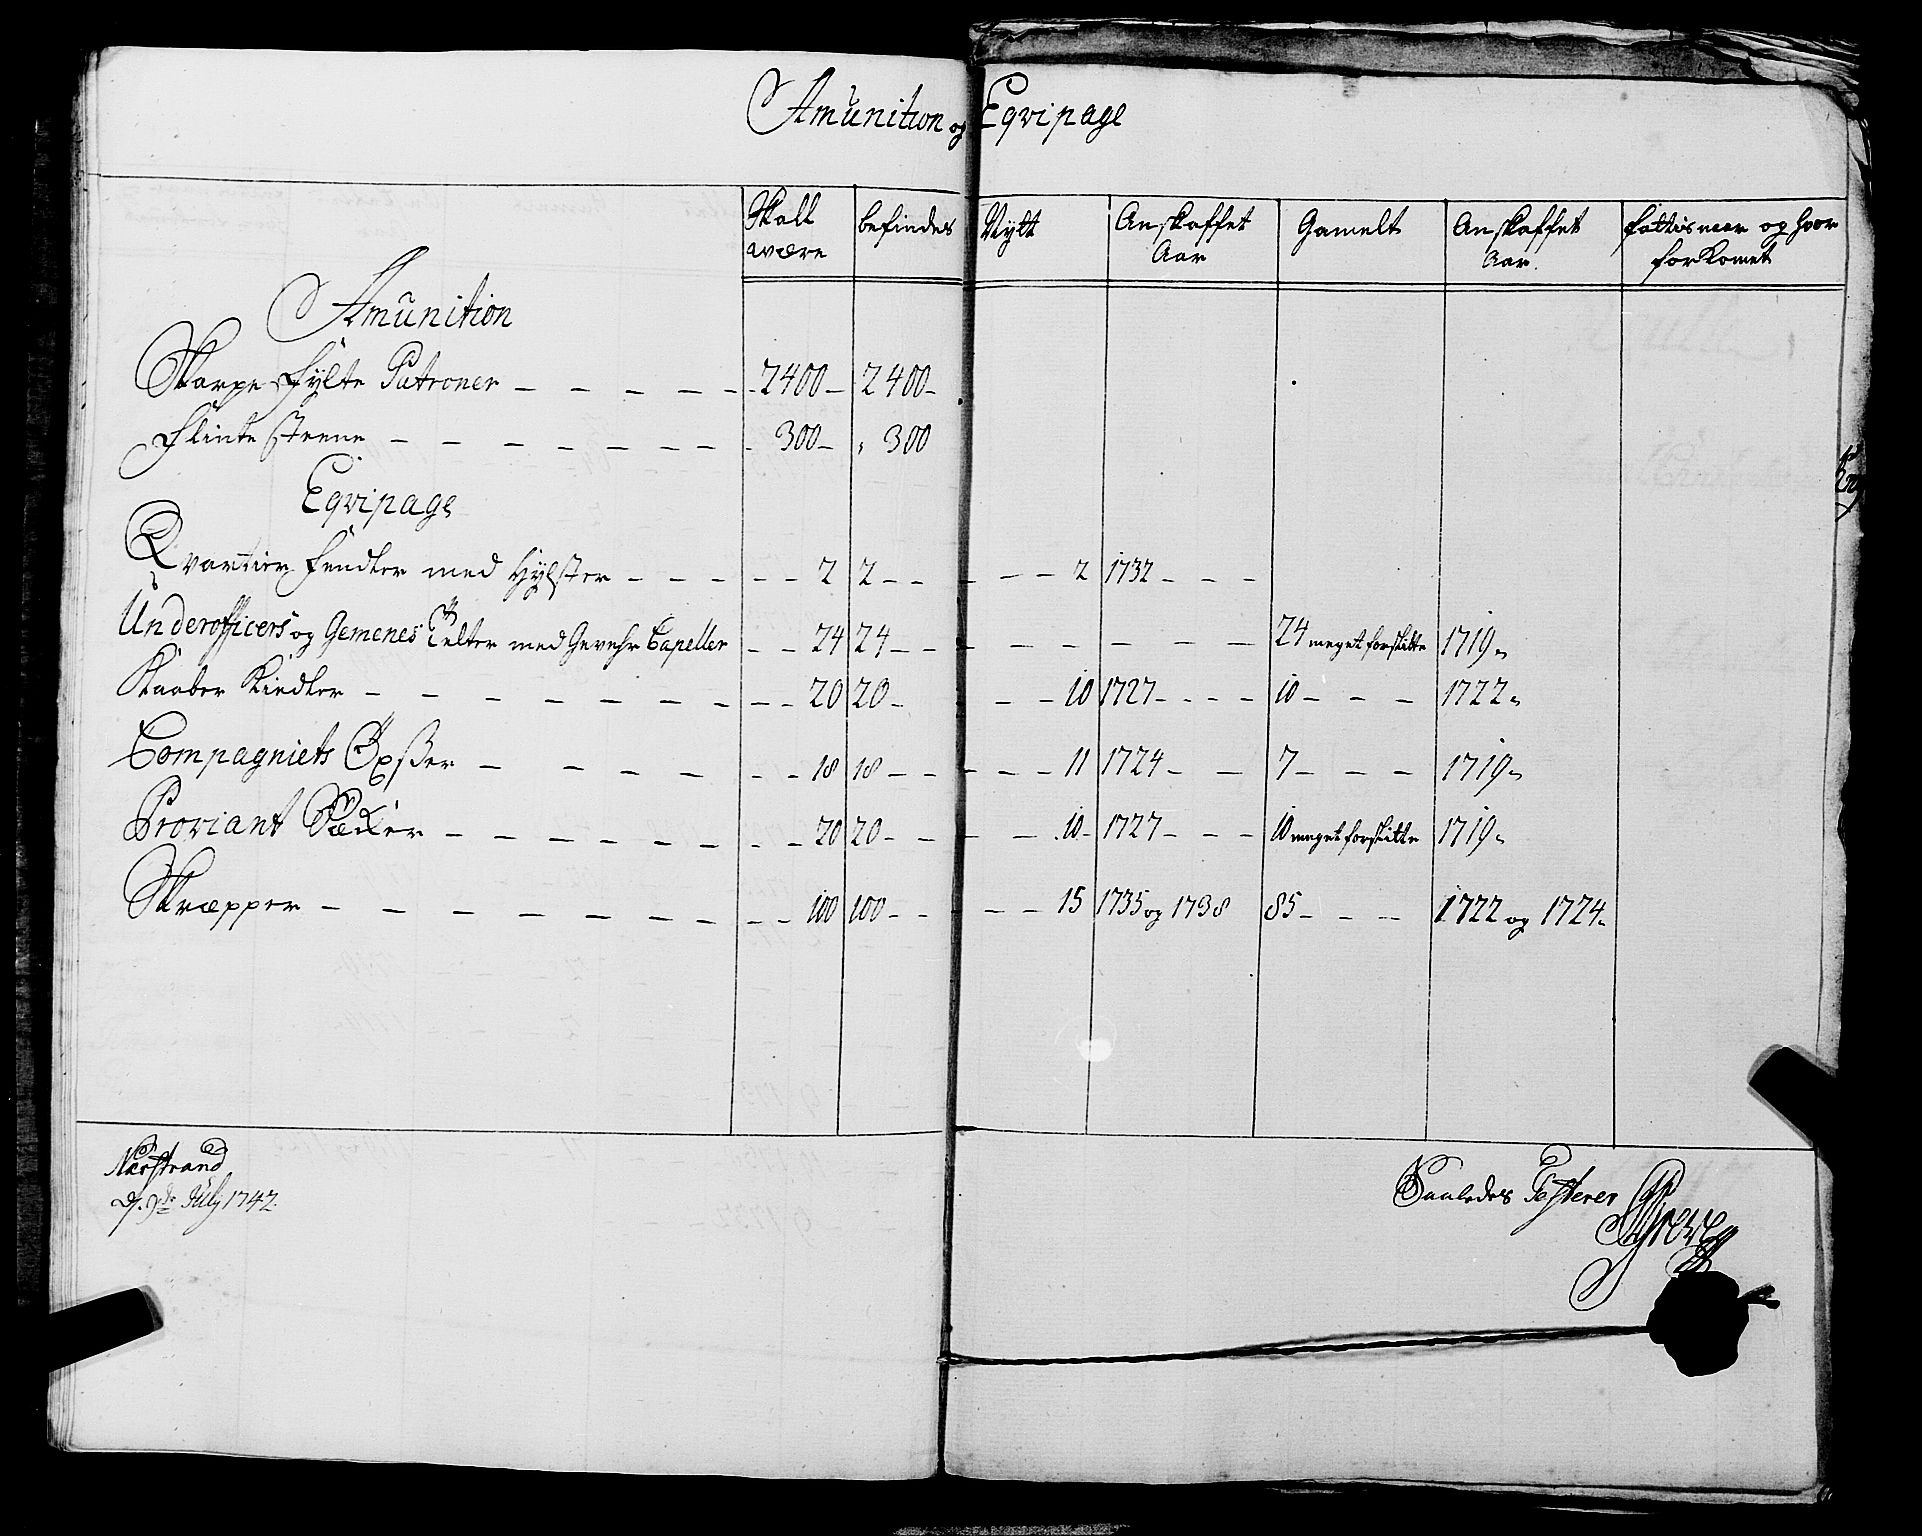 Amunition og Eqvipage
Skall være	befindes	Nÿtt	Anskaffet Aar	Gamelt	Anskaffet Aar	fattis naar og hvor forkomet
Amunition
Skarpe fÿlte Patroner — 2400 — 2400 —
Flinte steene — 300 — 300
Eqvipage
Qvarteer fendler med Hÿlster — 2	2 — 2	1732 —
Underofficers og Gemenes Telter med Gevehr Capeller — 24	24 — 24 meget forslitte	1719
Kaaber Kiedler — 20	20 — 10	1727 — 10 — 1722
Compagniets Öxßer — 18	18 — 11	1724 — 7 — 1719
Proviant Sække​r — 20	20 — 10 — 1727 — 10 meget forslitte	1719
Skræpper — 100	100 — 15	1735 og 1738	85 — 1722 og 1724
Nerstrand
d. 9de Julÿ 1742.
Saaledes Testerer